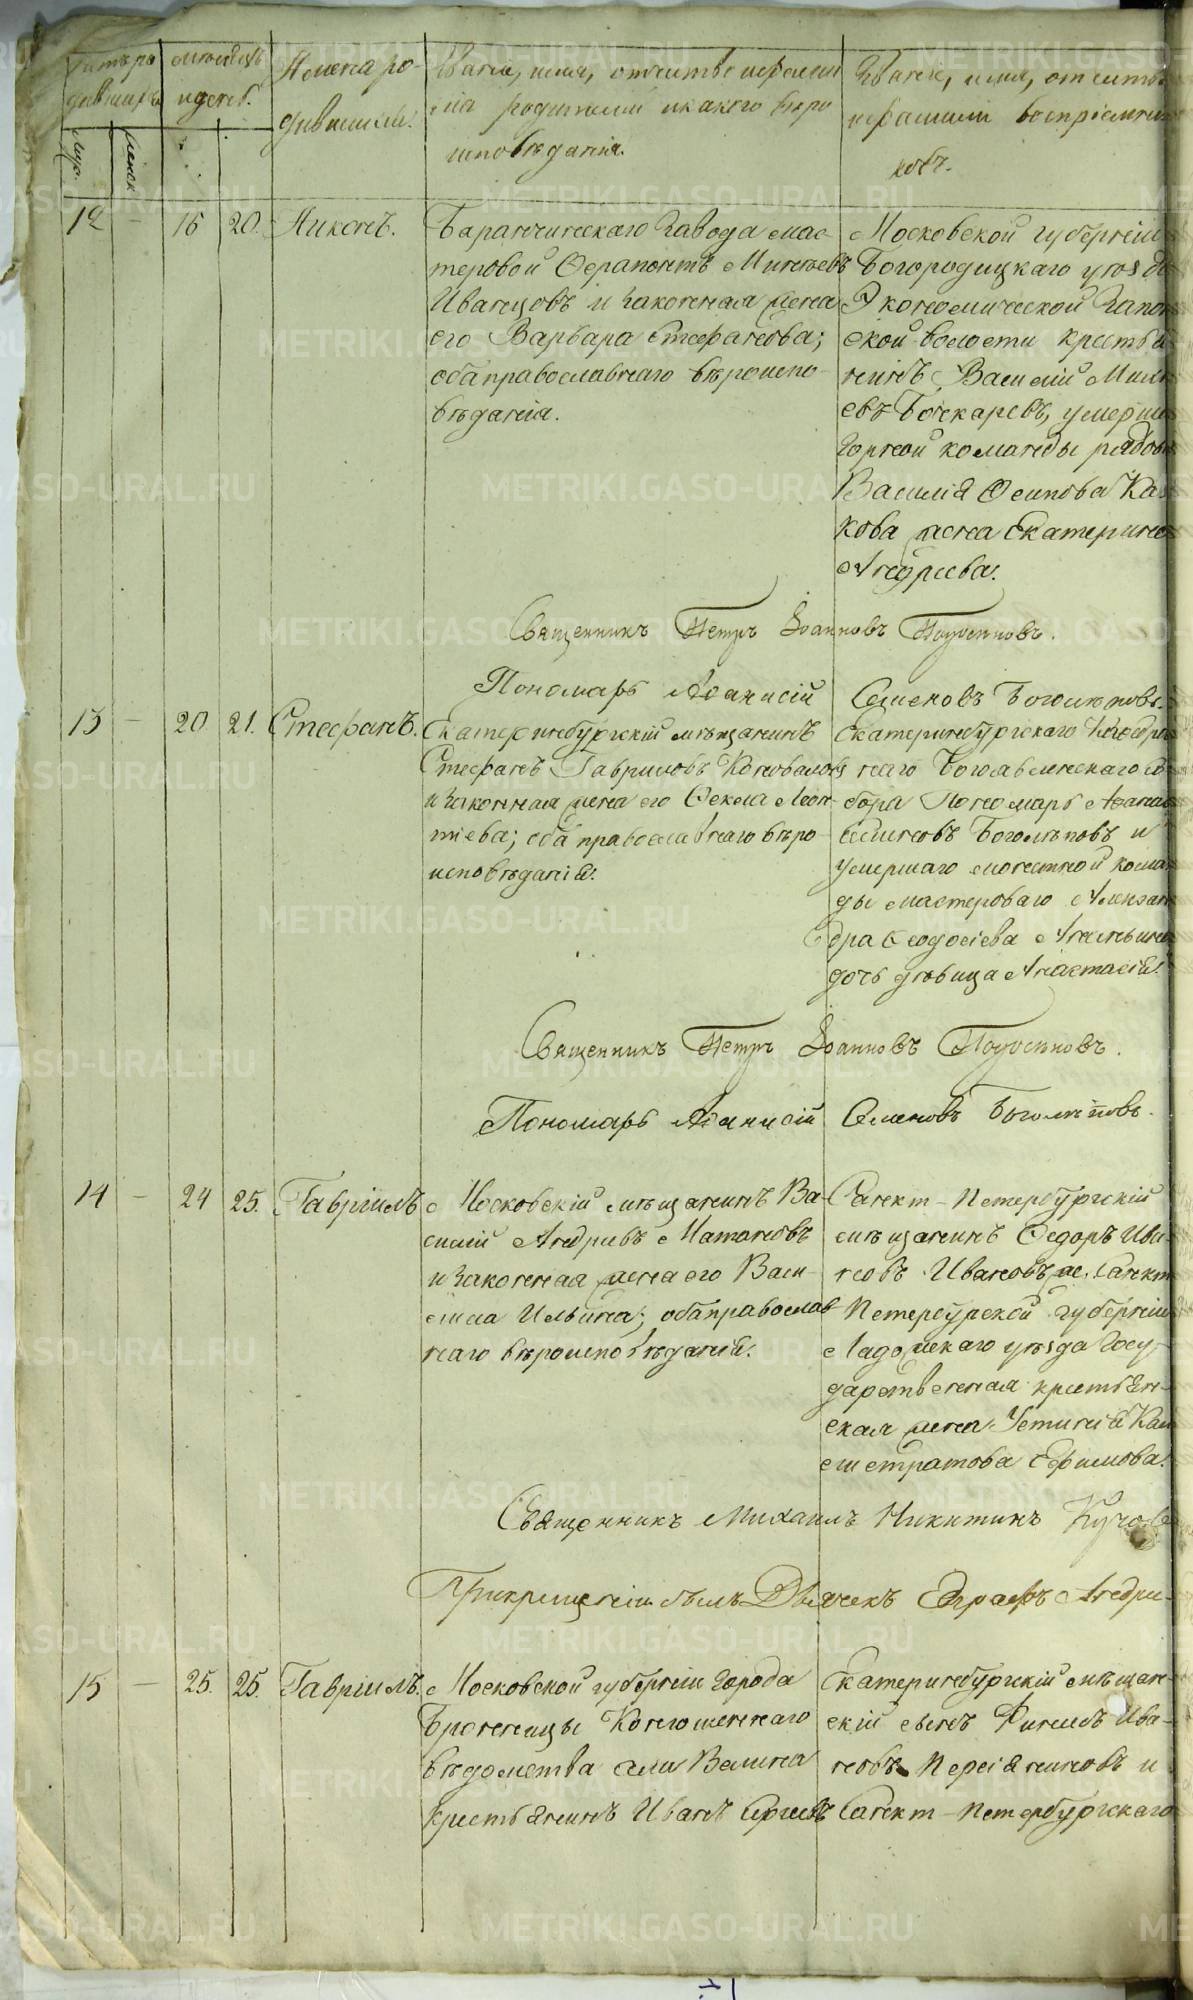 Щетъ ро-
дившихся
Муж.
Женск
месяцъ
и день.
Имена ро-
дившихся.
Званіе, имя, отчество и фамилія
родителей и какого вѣро
исповѣданія.
Званіе, имя, отчество
и фамилія воспріемни
ковъ.
12 — 16 20. Никонъ.
Баранчинскаго Завода мас-
теровой Ферапонтъ Минѣевъ
Иванцовъ и законная жена
его Варвара Стефанова;
оба православнаго вѣроиспо-
вѣданія.
Московской губерніи
Богородицкаго уѣзда
Экономической Запон
ской волости крестья
нинъ Василій
евъ Бочкаревъ, умерша
Горной команды рядова
Василія Осипова Каз
кова жена Екатерина
Андреева.
Священникъ Петръ Іоанновъ
Пономарь Аѳанасій Семеновъ Боголѣповъ.
13 — 20 21. Стефанъ.
Екатеринбургскій мѣщанинъ
Стефанъ Гавриловъ Коноваловъ
и законная жена его Ѳекла Леон-
тіева; оба православнаго вѣро-
исповѣданія.
Екатеринбургскаго Каѳедраль
наго Богоявленскаго Со
бора Пономарь Аѳанасій
Семеновъ Боголѣповъ и
умершаго монетной коман
ды мастероваго Алексан
дра Ѳеодосіева Ананьина
дочь дѣвица Анастасія.
Священникъ Петръ Іоанновъ
Пономарь Аѳанасій Семеновъ Боголѣповъ.
14 — 24 25. Гавріилъ
Московскій мѣщанинъ Ва-
силій Андреевъ Матановъ
и законная жена его Васи-
лиса Ильина; оба православ
наго вѣроисповѣданія.
Санкт-Петербургскій
мѣщанинъ Ѳедоръ Ива
новъ Ивановъ же. Санкт
Петербургской губерніи
Ладожскаго уѣзда Госу
дарственная крестьян-
ская жена Устинія Кал
листратова Ефимова.
Священникъ Михаилъ Никитинъ
При крещеніи былъ Дьячекъ Евграфъ Андре-
15 — 25. 25. Гавріилъ.
Московской губерніи Города
Бронницы Конюшеннаго
вѣдомства села Велина
крестьянинъ Иванъ Сергѣевъ
Екатеринбургскій мѣщан-
скій сынъ Филипъ Ива-
новъ Персіяниновъ и
Санкт-Петербургскаго
METRIKI.GASO-URAL.RU